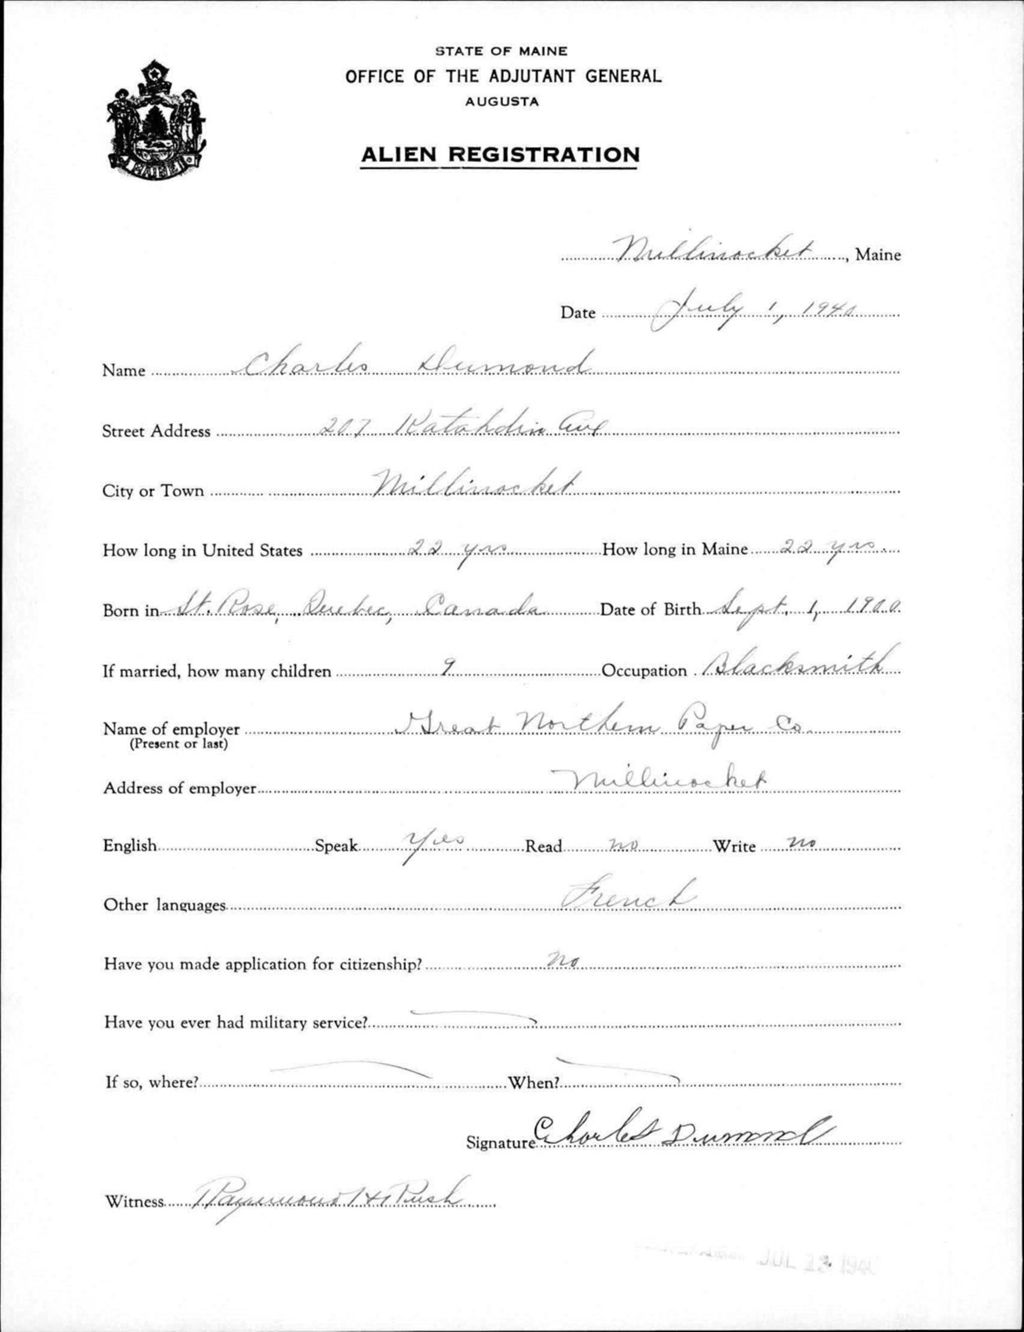 STATE OF MAINE
OFFICE OF THE ADJUTANT GENERAL
AUGUSTA
ALIEN REGISTRATION
Millinocket, Maine
Date July 1, 1940
Name Charles Dumond
Street Address 207 Katahdin Ave
City or Town Millinocket
How long in United States 22 yrs How long in Maine 22 yrs.
Born in St. Rose, Quebec, Canada Date of Birth Sept. 1, 1900
If married, how many children 9 Occupation Blacksmith
Name of employer Great Northern Paper Co.
(Present or last)
Address of employer Millinocket
English Speak Yes Read no Write no
Other languages French
Have you made application for citizenship? No
Have you ever had military service?
If so, where? When?
Signature Charles Dumond
Witness Raymond H Rush
JUL 12 1940